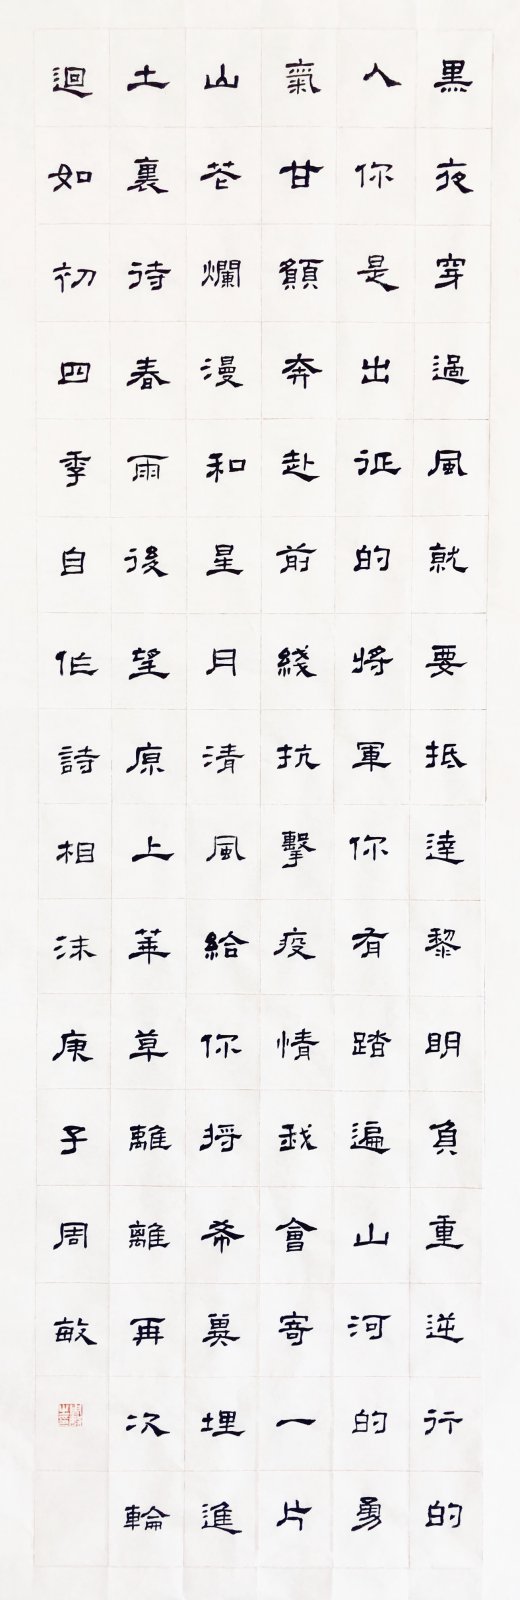 黑夜穿過風就要抵達黎明負重逆行的
人你是出征的將軍你有踏遍山河的勇
氣甘願奔赴前綫抗擊疫情我會寄一片
山花爛漫和星月清風給你将希冀埋進
土裏待春雨後望原上草離離再次輪
迴如初四季自作詩相沫庚子周敏